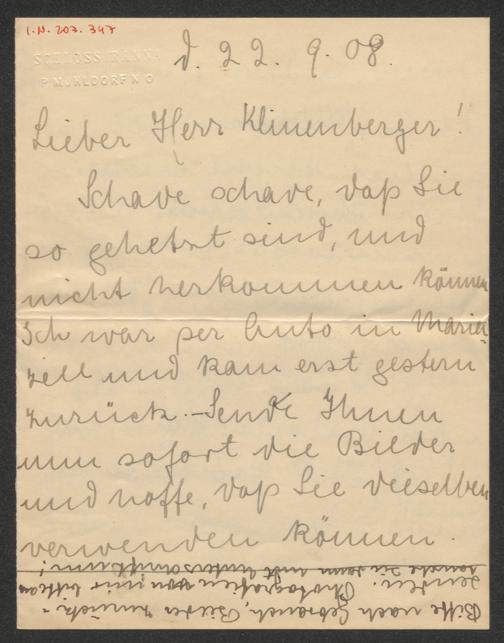 I.N. 203.347
SCHLOSS RANNA
P. MÜHLDORF N Ö
d. 22. 9. 08.
Lieber Herr Klinenberger!
Schade schade, daß Sie
so gehetzt sind, und
nicht herkommen können
Ich war per Auto in Maria-
zell und kam erst gestern
zurück. – Sende Ihnen
nun sofort die Bilder
und hoffe, daß Sie dieselben
verwenden können.
Bitte nach Gebrauch, Bilder zurück-
senden. Photografien von mir bitte
sende dann mit Unterschrift